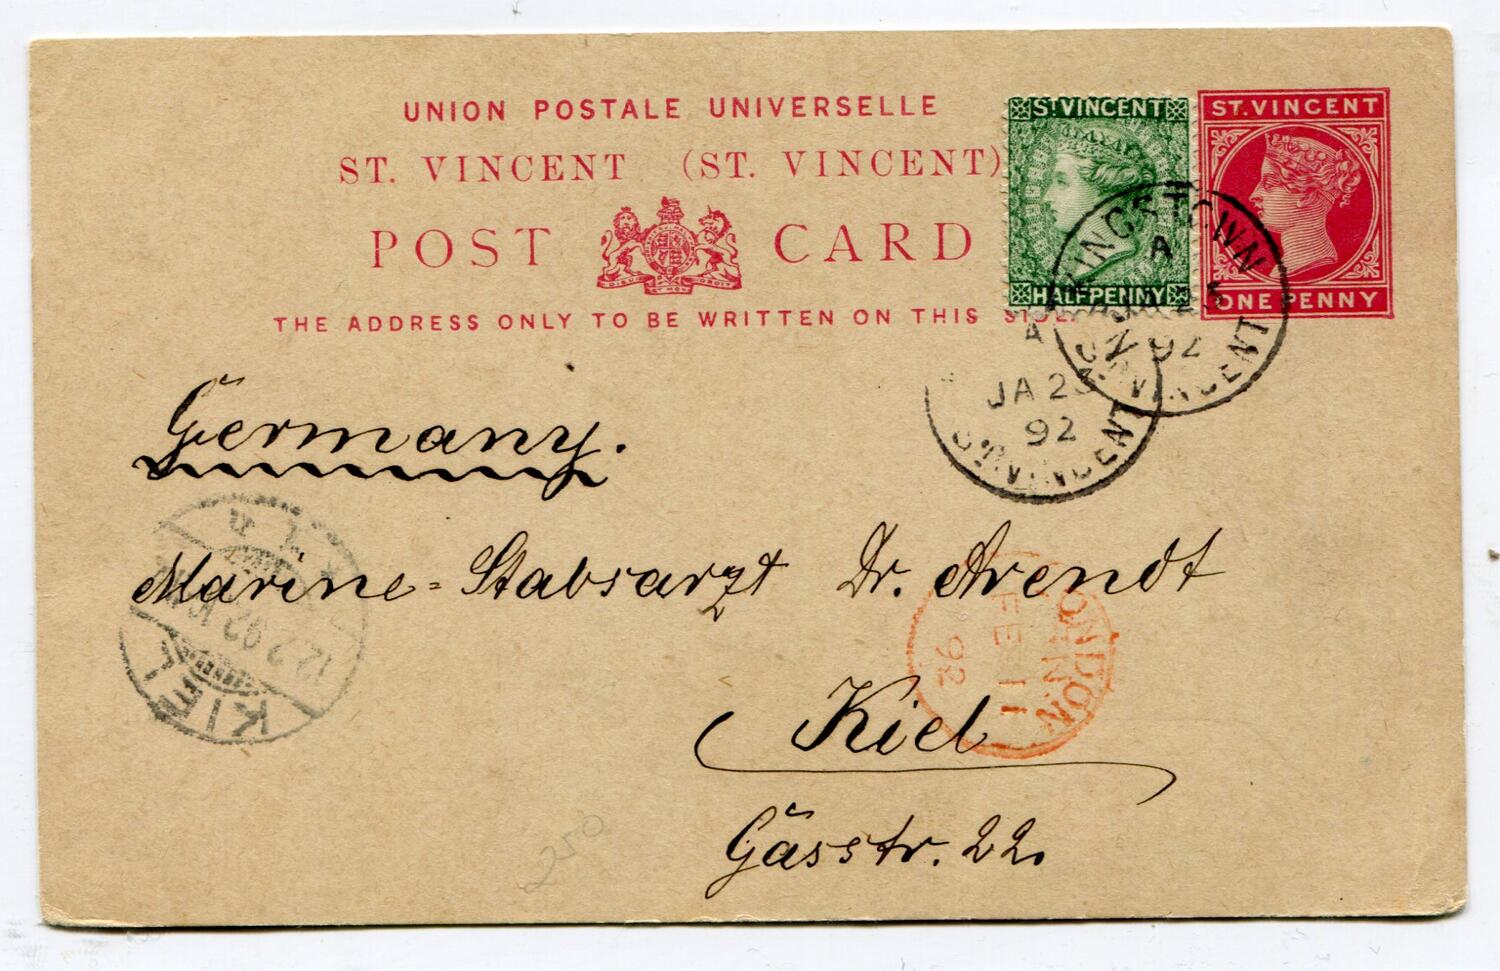 UNION POSTALE UNIVERSELLE
ST. VINCENT (ST. VINCENT)
POST CARD
THE ADDRESS ONLY TO BE WRITTEN ON THIS SIDE.
ST VINCENT
HALFPENNY
ST. VINCENT
ONE PENNY
KINGSTOWN
A
92
ST. VINCENT
A
JA 25
92
ST. VINCENT
Germany.
Marine-Stabsarzt Dr. Arendt
Kiel
Gasstr. 22.
LONDON
FE 11
92
KIEL
12.2.92
250